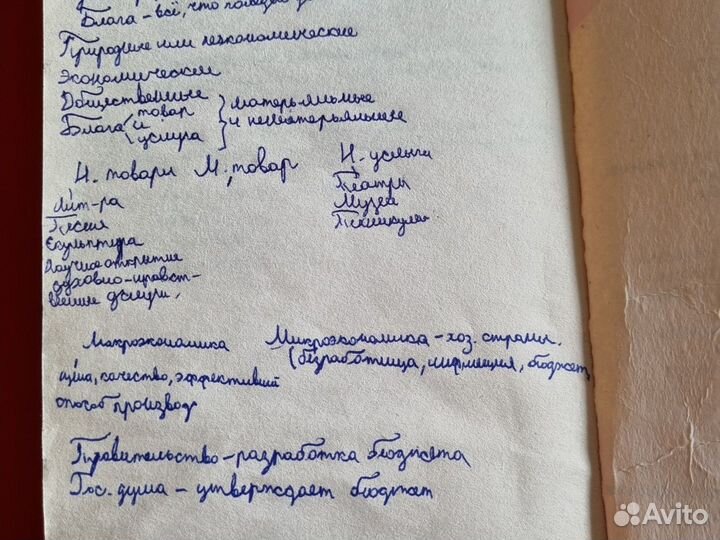 Блага - всё, что
Природные или неэкономические
Экономические
Общественные
Блага товар и услуга } матерьяльные и нематерьяльные
Н. товары М. товар Н. услуги
Лит-ра
Песня
Скульптура
Научное открытие
духовно-нравст-
венные
Театры
Музеи
Макроэкономика Микроэкономика - хоз. страны.
(безработица, инфляция, бюджет
цена, качество, эффективный
способ производ
Правительство - разработка бюджета
Гос. дума - утверждает бюджет
Avito